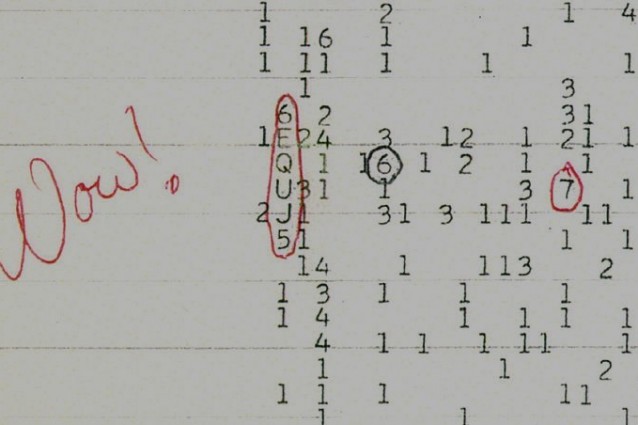 1 2 1 4
1 16 1 1
1 11 1 1 1
1 3
6 2 31
1 E 24 3 12 1 21 1
Wow! Q 1 16 1 2 1 1
U 31 1 3 7 1
2 J 1 31 3 111 11
5 1 1 1
14 1 113 2
1 3 1 1 1
1 4 1 1 1 1
4 1 1 1 11 1
1 1 2
1 1 1 11
1 1 1